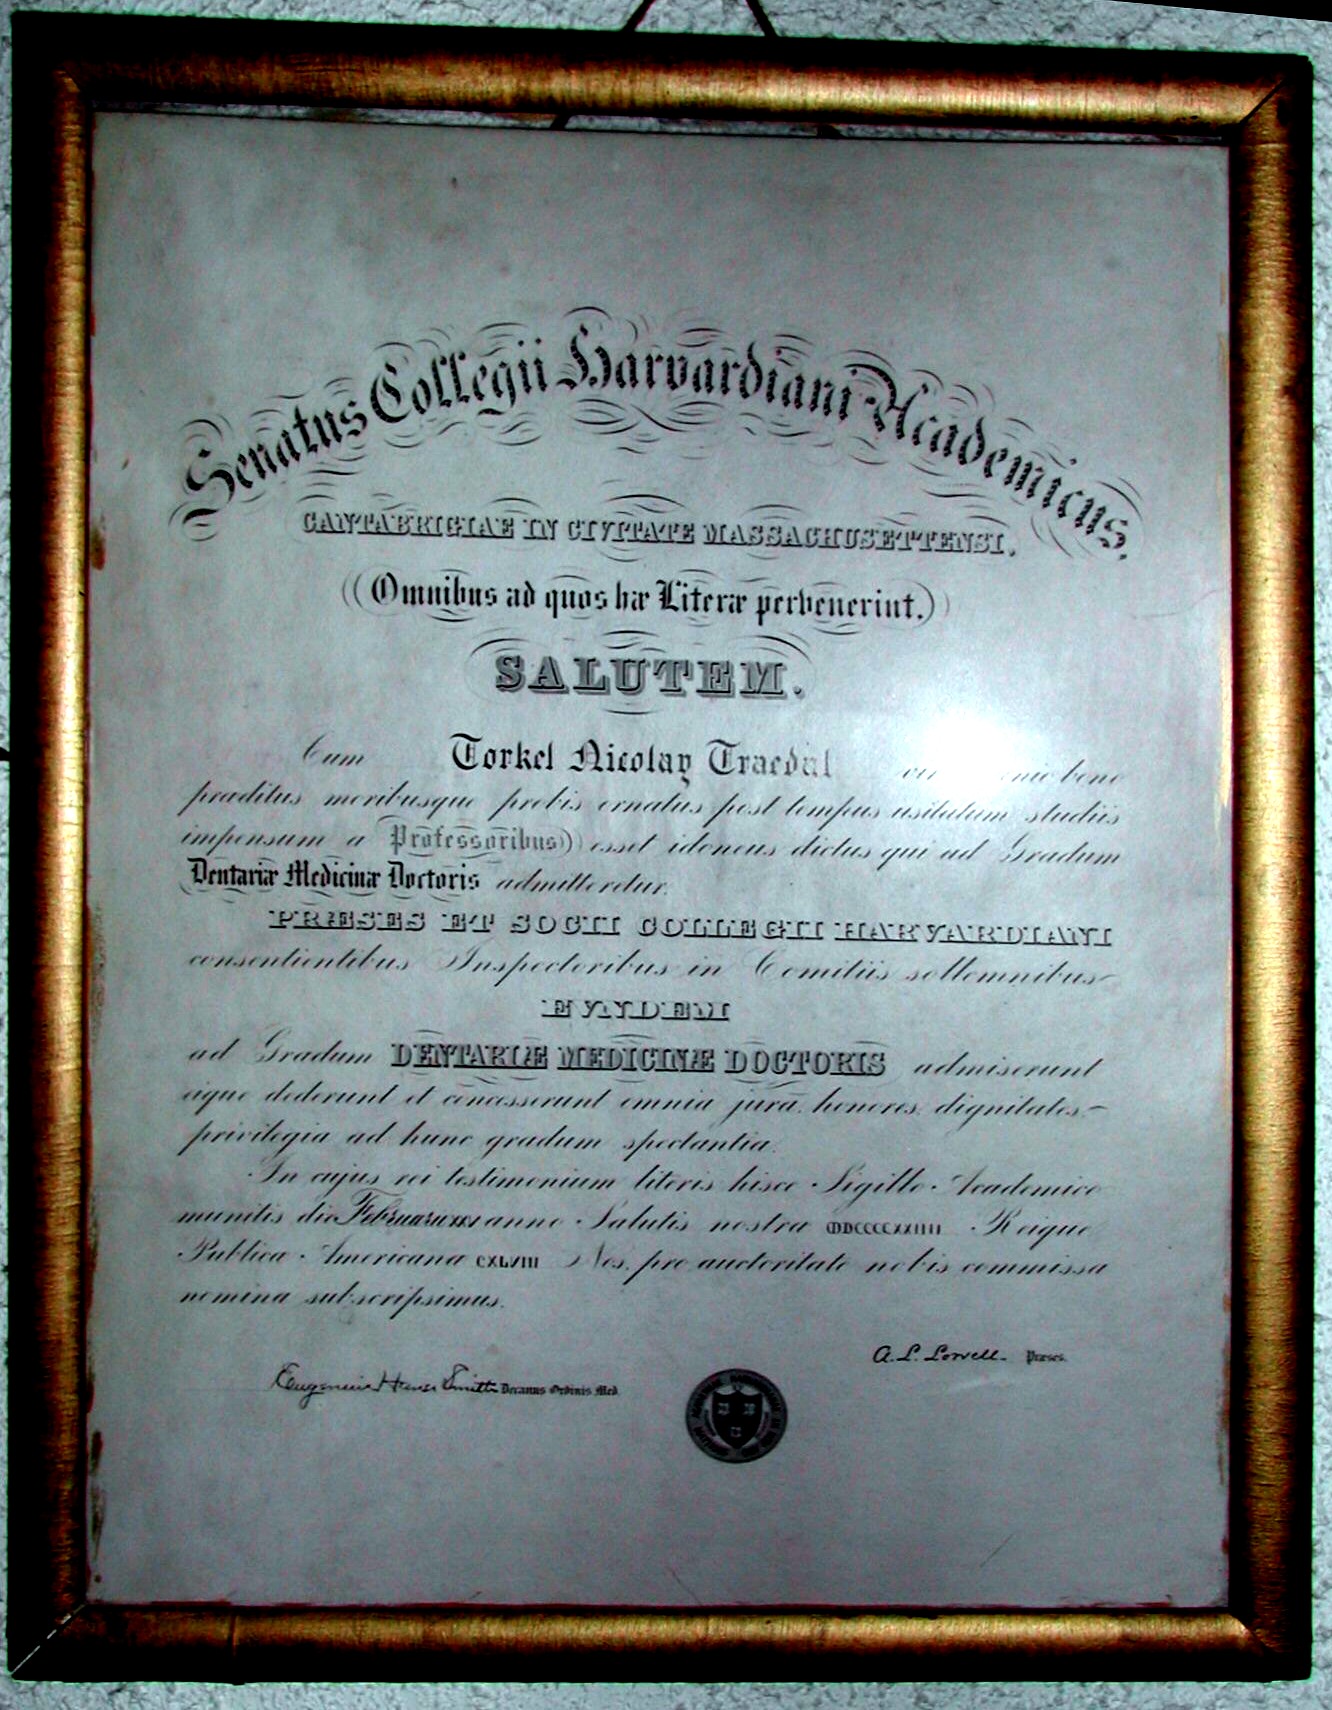 Senatus Collegii Harvardiani Academicus.
CANTABRIGIAE IN CIVITATE MASSACHUSETTENSI.
(Omnibus ad quos hæ Literæ pervenerint.)
SALUTEM.
Cum Torkel Nicolay Traedal bene
præditus moribusque probis ornatus post tempus usitatum studiis
impensum a Professoribus esset idoneus dictus qui ad Gradum
Dentariæ Medicinæ Doctoris admitteretur,
PRÆSES ET SOCII COLLEGII HARVARDIANI
consentientibus Inspectoribus in Comitiis sollemnibus
EVNDEM
ad Gradum DENTARIÆ MEDICINÆ DOCTORIS admiserunt
eique dederunt et concesserunt omnia jura, honores, dignitates,
privilegia ad hunc gradum spectantia.
In cujus rei testimonium literis hisce Sigillo Academico
munitis die anno Salutis nostræ MDCCCCXXIIII Reique
Publicæ Americanæ CXLVIII Nos, pro auctoritate nobis commissa
nomina subscripsimus.
A. L. Lowell. Præses.
Eugenius Smith Decanus Ordinis Med.